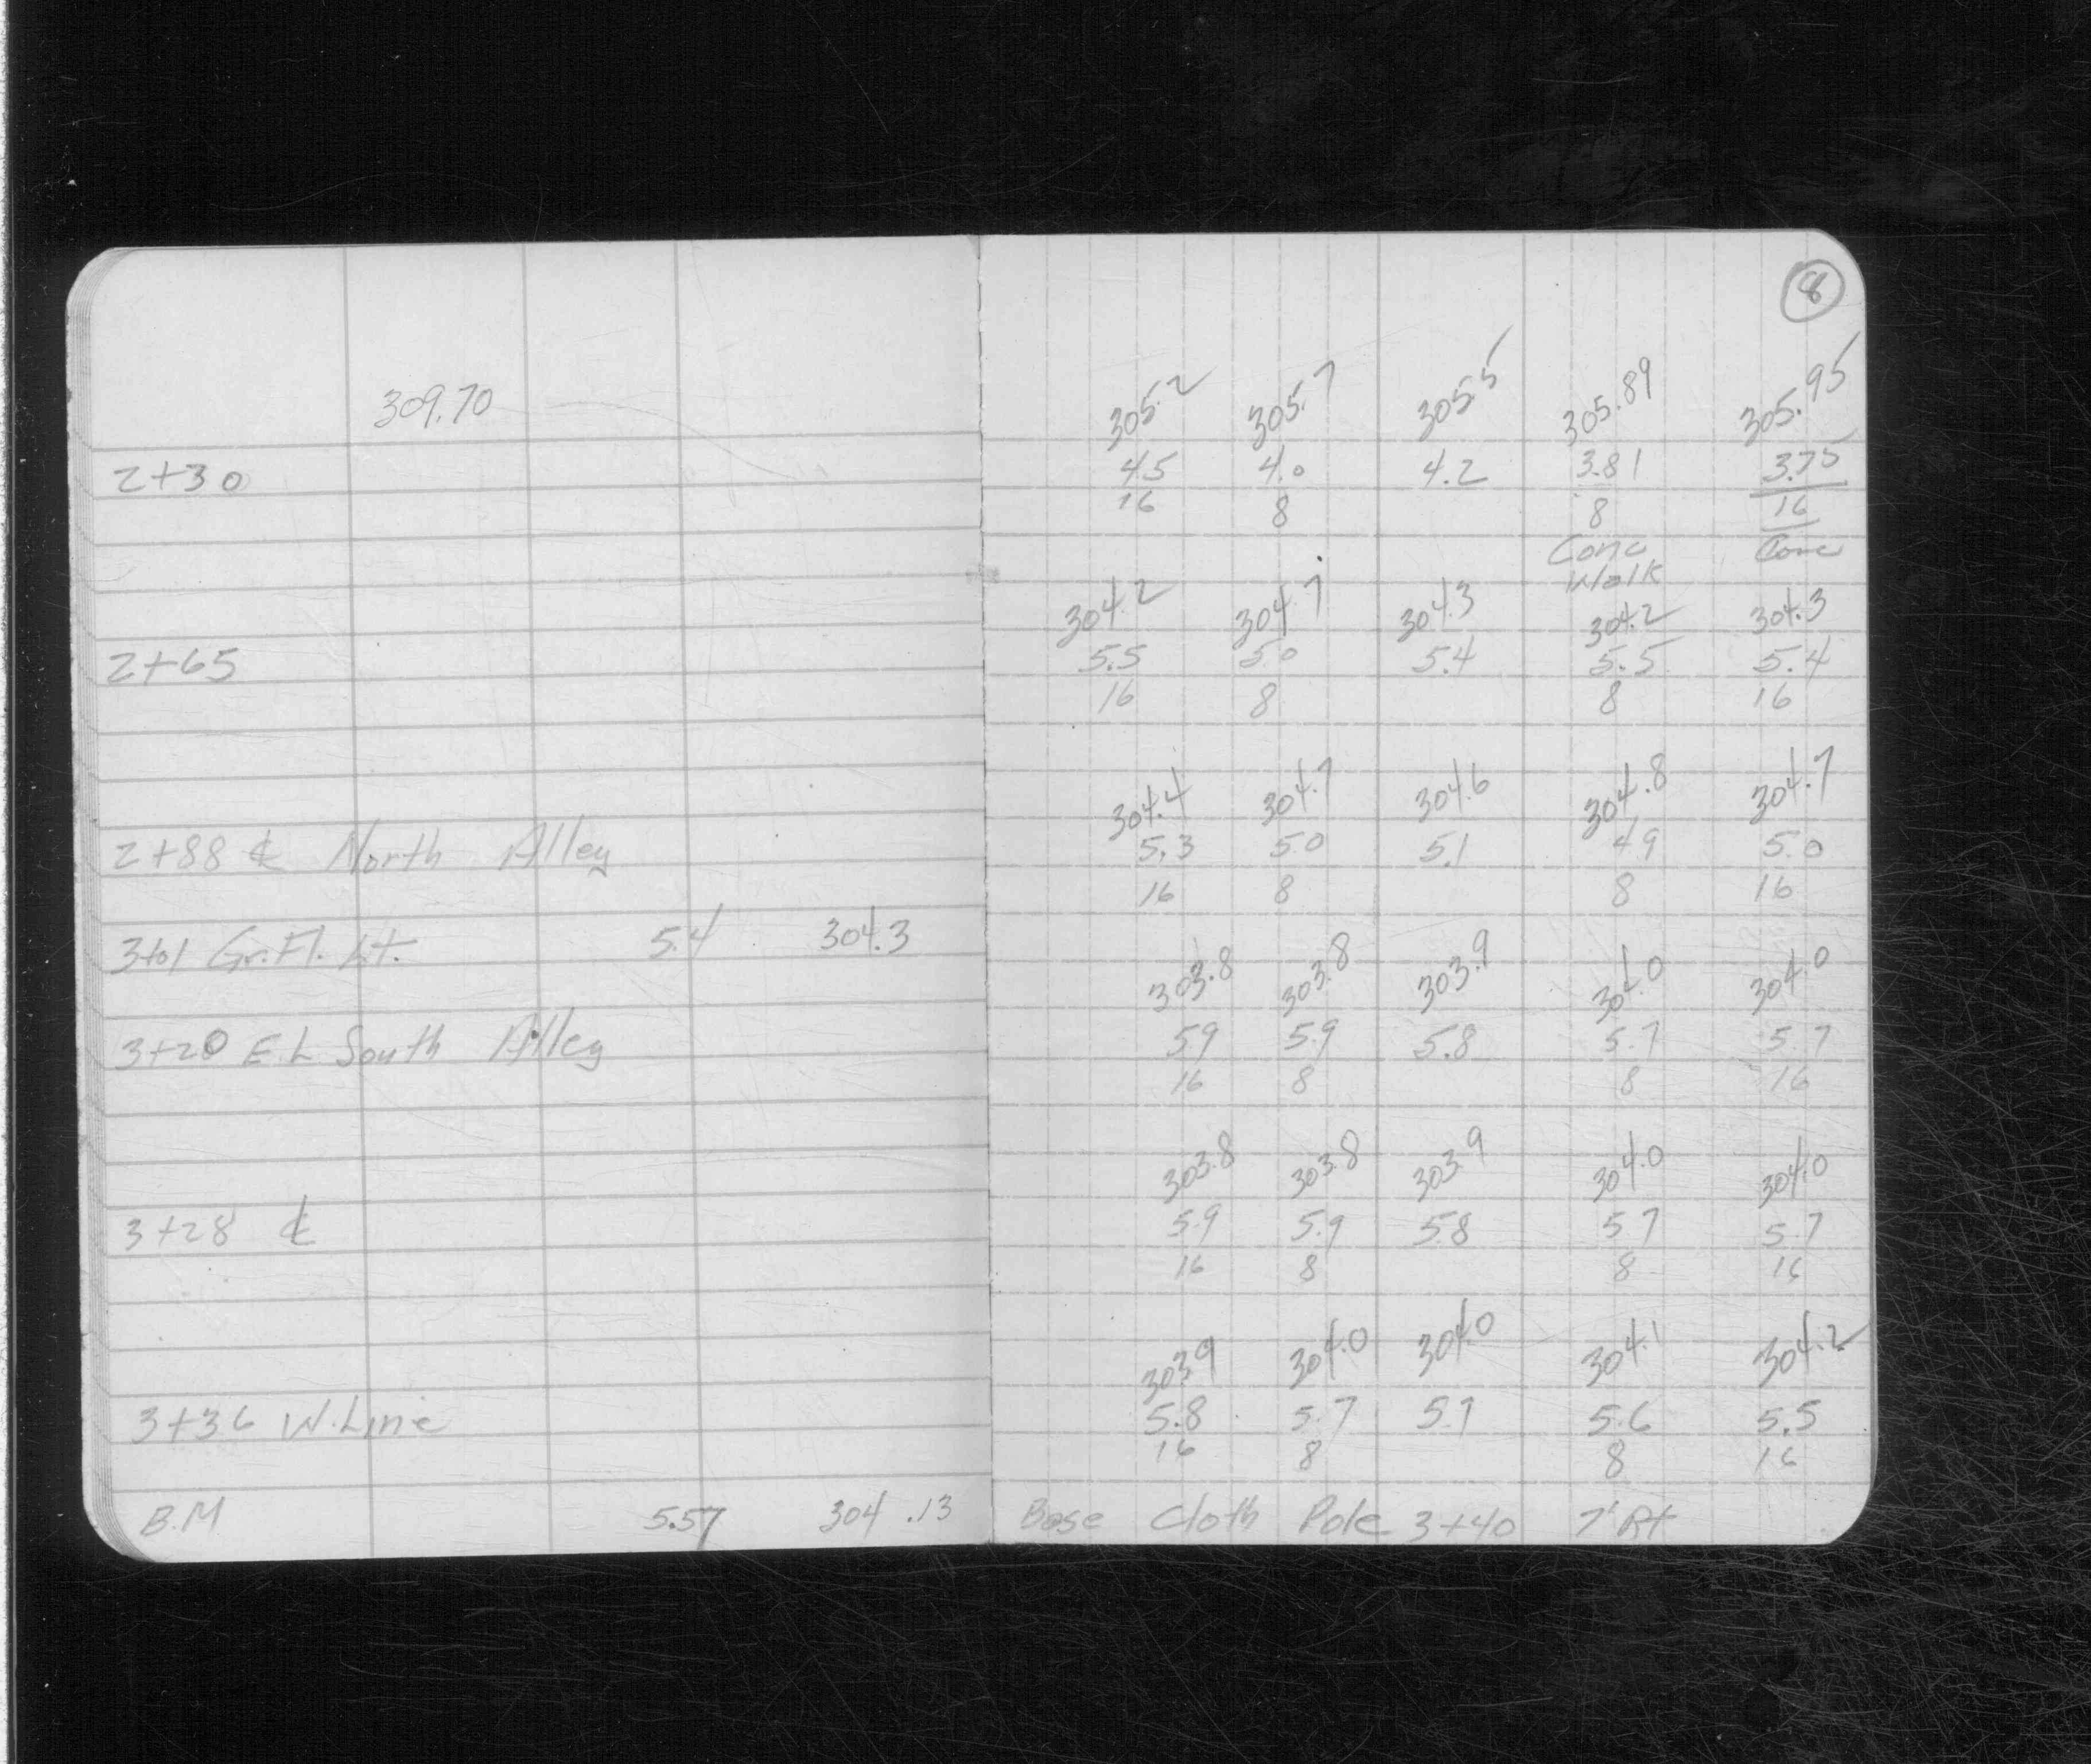 8
309.70 305.2 305.7 305.5 305.89 305.95
2+30 4.5 4.0 4.2 3.81 3.75
16 8 8 16
Conc Walk Conc
304.2 304.7 304.3 304.2 304.3
2+65 5.5 5.0 5.4 5.5 5.4
16 8 8 16
304.4 304.7 304.6 304.8 304.7
2+88 ℄ North Alley 5.3 5.0 5.1 4.9 5.0
16 8 8 16
3+01 Gr. Fl. Lt. 5.4 304.3
303.8 303.8 303.9 304.0 304.0
3+20 E.L South Alley 5.9 5.9 5.8 5.7 5.7
16 8 8 16
303.8 303.8 303.9 304.0 304.0
3+28 ℄ 5.9 5.9 5.8 5.7 5.7
16 8 8 16
303.9 304.0 304.0 304.1 304.2
3+36 W. Line 5.8 5.7 5.7 5.6 5.5
16 8 8 16
B.M 5.57 304.13 Base Cloth Pole 3+40 7' Rt